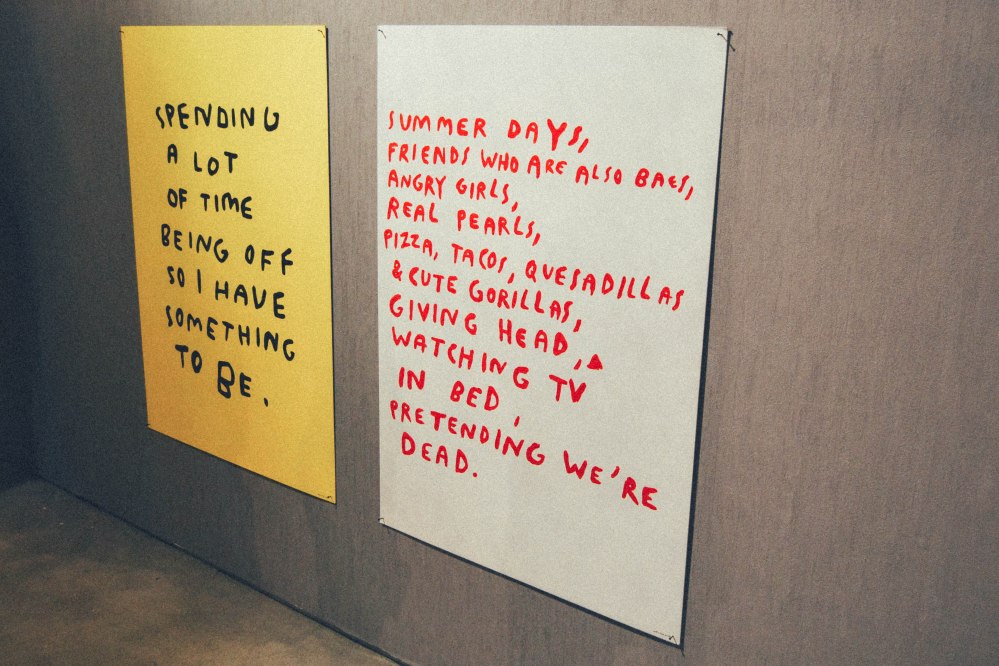 SPENDING
A LOT
OF TIME
BEING OFF
SO I HAVE
SOMETHING
TO BE.
SUMMER DAYS,
FRIENDS WHO ARE ALSO BAES,
ANGRY GIRLS,
REAL PEARLS,
PIZZA, TACOS, QUESADILLAS
& CUTE GORILLAS,
GIVING HEAD,
WATCHING TV
IN BED,
PRETENDING WE'RE
DEAD.